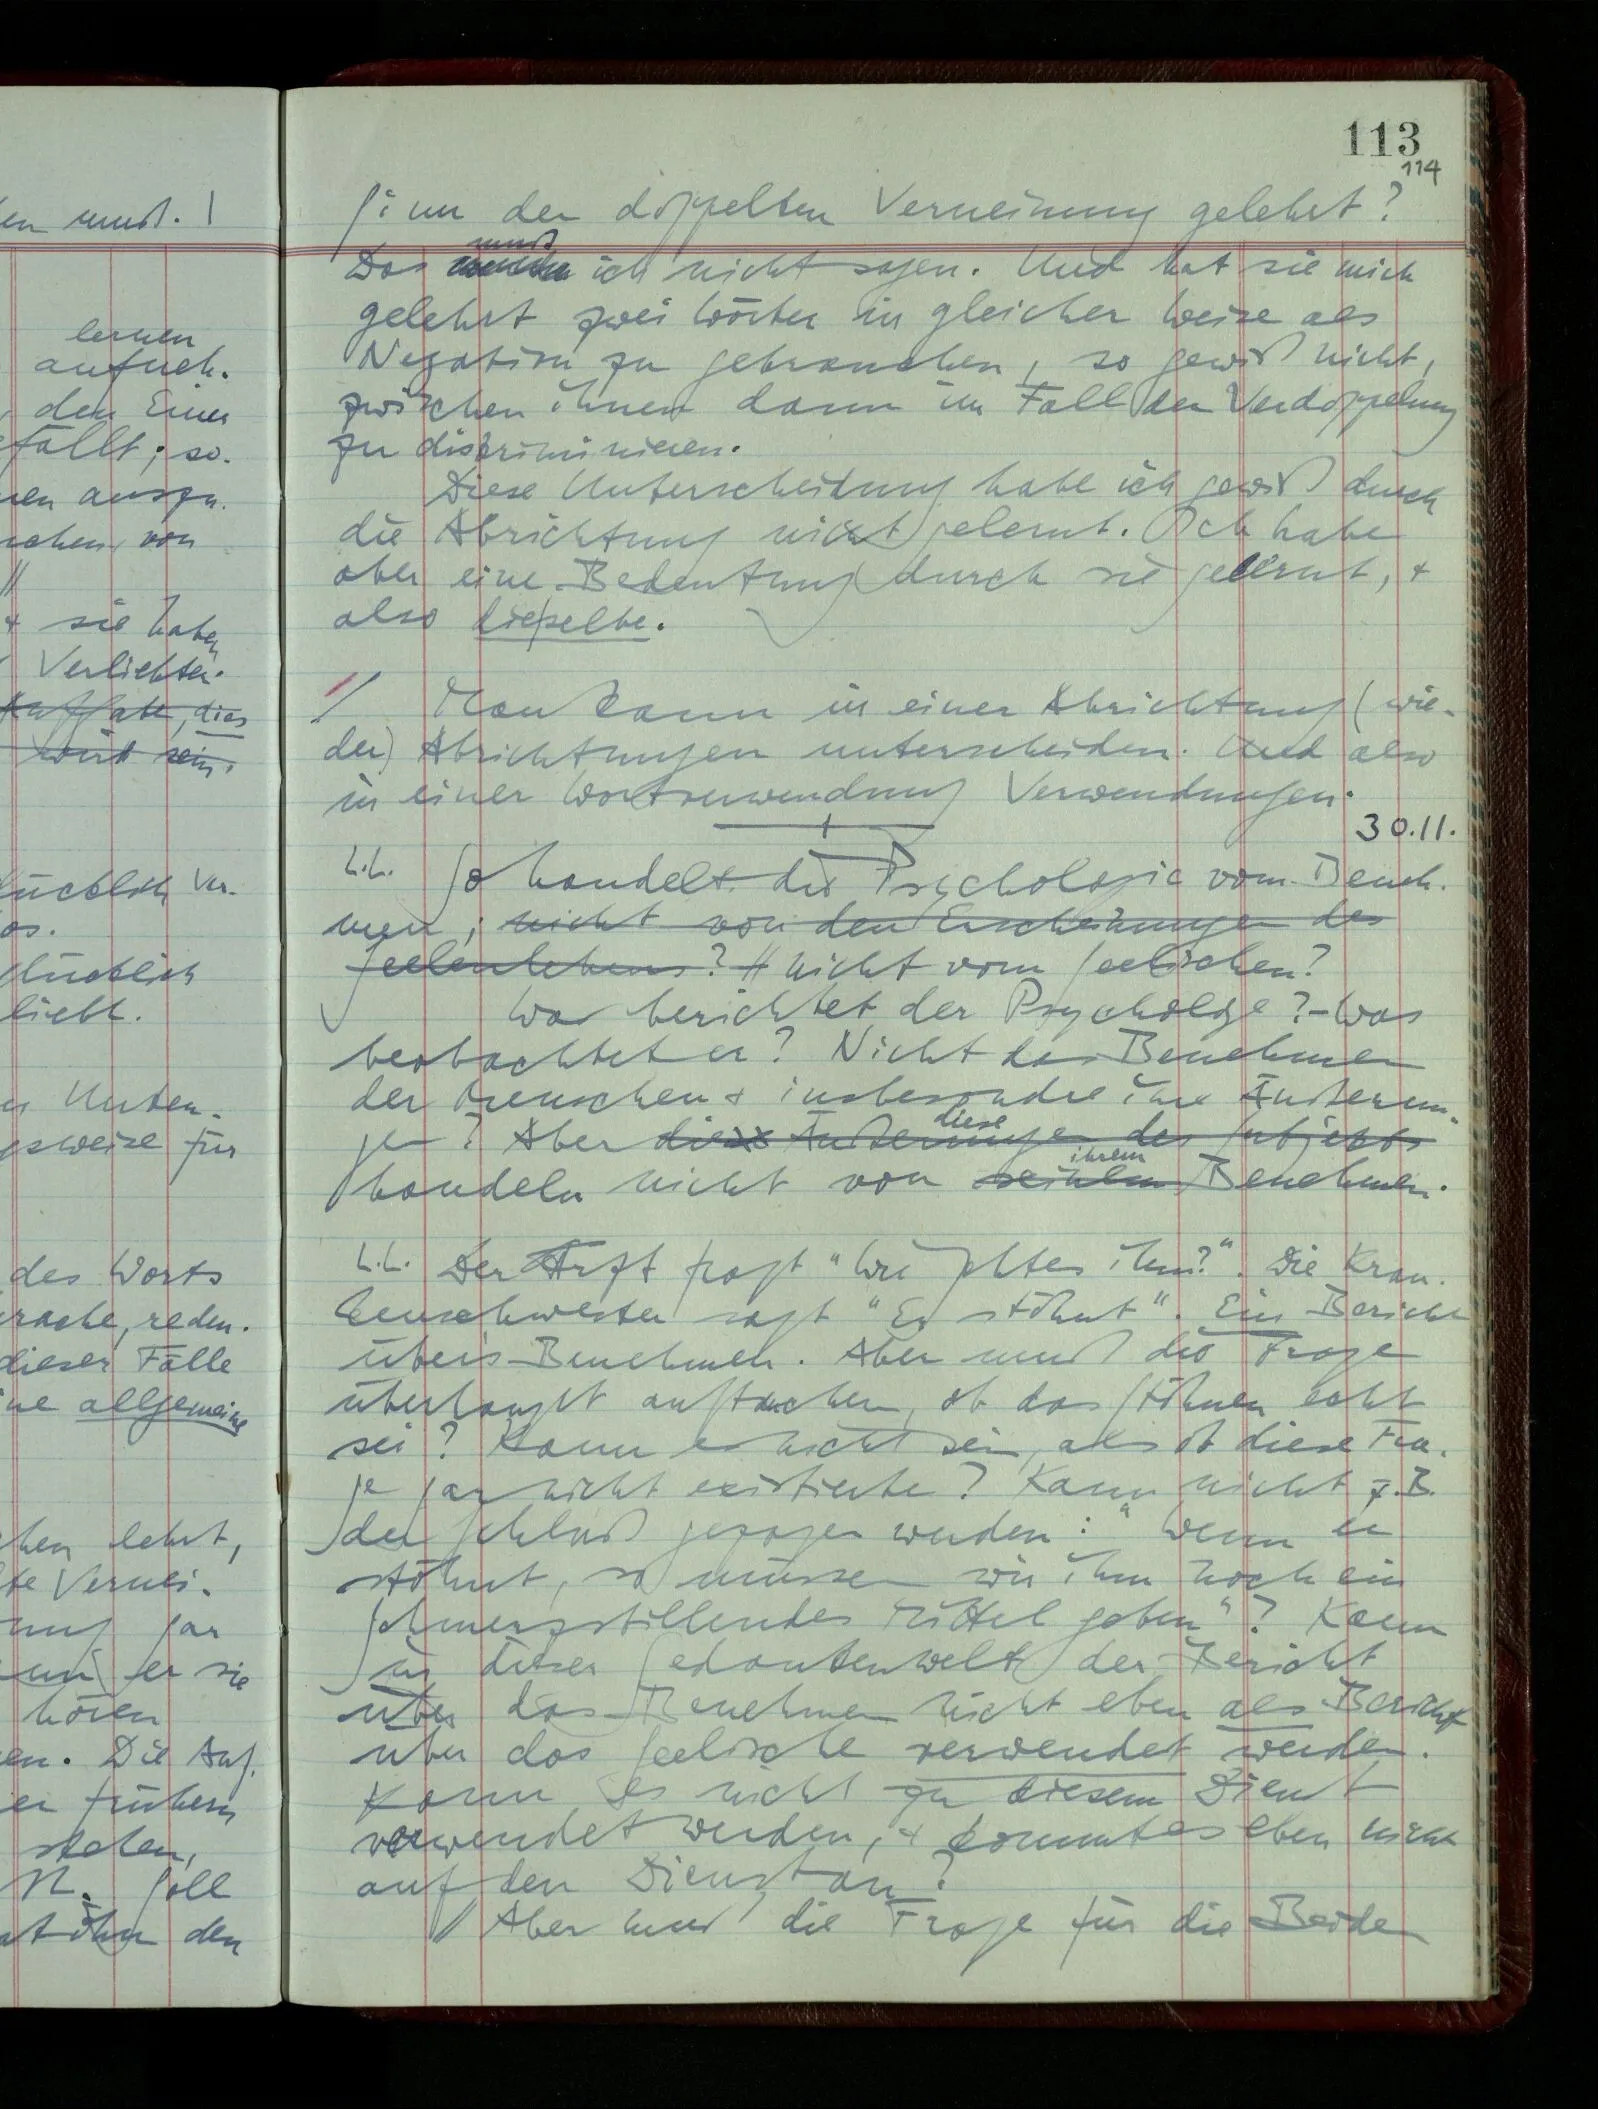 en muß. |
lernen
aufneh-
, den Einen
fällt; so-
nen auszu-
von
//
+ sie haben
Verliebter.
dies
wird sein.
Ver-
os.
glücklich
liebt.
Unter-
gsweise für
des Worts
rache, reden.
dieser Fälle
ne allgemeine
chen lehrt,
te Vernei-
nung gar
er sie
hören
en. Die Auf-
er frühern
stehen,
N. Soll
den
113
114
Sinn der doppelten Verneinung gelehrt?
muß
Das ich nicht sagen. Und hat sie mich
gelehrt zwei Wörter in gleicher Weise als
Negation zu gebrauchen, so gewiß nicht,
zwischen ihnen dann im Fall der Verdoppelung
zu diskriminieren.
Diese Unterscheidung habe ich gewiß durch
die Abrichtung nicht gelernt. Ich habe
aber eine Bedeutung durch sie gelernt, +
also dieselbe.
/ Man kann in einer Abrichtung (wie-
der) Abrichtungen unterscheiden. Und also
in einer Wortverwendung Verwendungen.
30.11.
So handelt die Psychologie vom Beneh-
men; nicht von den Erscheinungen des
Seelenlebens? // nicht vom Seelischen?
Was berichtet der Psychologe? – Was
beobachtet er? Nicht das Benehmen
der Menschen + insbesondre ihre Äußerun-
diese
gen? Aber diese Äußerungen des Subjekts
ihrem
handeln nicht von seinem Benehmen.
Der Arzt fragt "Wie geht es ihm?". Die Kran-
kenschwester sagt "Er stöhnt". Ein Bericht
übers Benehmen. Aber muß die Frage
überhaupt auftauchen, ob das Stöhnen echt
sei? Kann es nicht sein, als ob diese Fra-
ge gar nicht existierte? Kann nicht z.B.
der Schluß gezogen werden: "Wenn er
stöhnt, so müssen wir ihm noch ein
schmerzstillendes Mittel geben"? Kann
in dieser Gedankenwelt der Bericht
über das Benehmen nicht eben als Bericht
über das Seelische verwendet werden.
Kann es nicht zu diesem Dienst
verwendet werden, + kommt es eben nicht
auf den Dienst an?
// Aber muß die Frage für die Beide